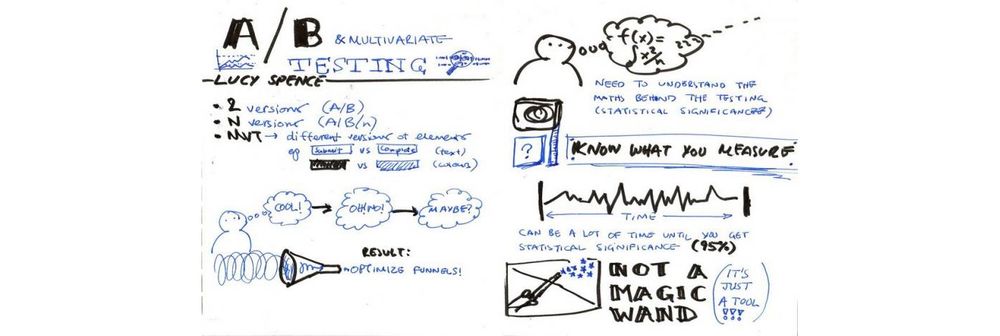 A/B & MULTIVARIATE
TESTING
LUCY SPENCE
• 2 versions (A/B)
• N versions (A/B/n)
• MVT → different versions of elements
eg submit vs complete (text)
vs (colours)
COOL! → OH! NO! → MAYBE?
RESULT:
→ OPTIMIZE FUNNELS!
f(x)=
∫x²/n
???
NEED TO UNDERSTAND THE
MATHS BEHIND THE TESTING
(STATISTICAL SIGNIFICANCE)
?
KNOW WHAT YOU MEASURE
TIME
CAN BE A LOT OF TIME UNTIL YOU GET
STATISTICAL SIGNIFICANCE (95%)
NOT A
MAGIC
WAND
(IT'S
JUST
A TOOL
!!!)